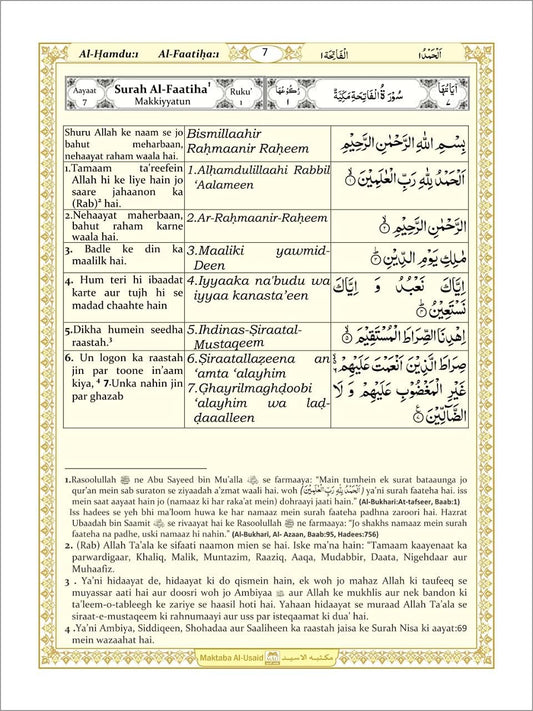 Al-Ḥamdu:1 Al-Faatiḥa:1 7 اَلْفَاتِحَة ١ اَلْحَمْدُ ١
Aayaat 7 Surah Al-Faatiha¹ Makkiyyatun Ruku' 1 رُكُوْعُهَا ١ سُوْرَةُ الْفَاتِحَةِ مَكِّيَّةٌ اٰيَاتُهَا ٧
Shuru Allah ke naam se jo
bahut meharbaan,
nehaayat raham waala hai.
Bismillaahir
Raḥmaanir Raḥeem
بِسْمِ اللّٰهِ الرَّحْمٰنِ الرَّحِيْمِ
1.Tamaam ta'reefein
Allah hi ke liye hain jo
saare jahaanon ka
(Rab)² hai.
1.Alḥamdulillaahi Rabbil
‘Aalameen
اَلْحَمْدُ لِلّٰهِ رَبِّ الْعٰلَمِيْنَ ۙ‏﴿۱﴾
2.Nehaayat maherbaan,
bahut raham karne
waala hai.
2.Ar-Raḥmaanir-Raḥeem
الرَّحْمٰنِ الرَّحِيْمِ ۙ‏﴿۲﴾
3. Badle ke din ka
maalilk hai.
3.Maaliki yawmid-
Deen
مٰلِكِ يَوْمِ الدِّيْنِ ؕ‏﴿۳﴾
4. Hum teri hi ibaadat
karte aur tujh hi se
madad chaahte hain
4.Iyyaaka na'budu wa
iyyaa kanasta'een
اِيَّاكَ نَعْبُدُ وَ اِيَّاكَ
نَسْتَعِيْنُ ؕ‏﴿۴﴾
5.Dikha humein seedha
raastah.³
5.Ihdinas-Ṣiraatal-
Mustaqeem
اِهْدِنَا الصِّرَاطَ الْمُسْتَقِيْمَ ۙ‏﴿۵﴾
6. Un logon ka raastah
jin par toone in'aam
kiya, ⁴ 7.Unka nahin jin
par ghazab
6.Ṣiraatallaẓeena an
‘amta ‘alayhim
7.Ghayrilmaghḍoobi
‘alayhim wa laḍ-
ḍaaalleen
صِرَاطَ الَّذِيْنَ اَنْعَمْتَ عَلَيْهِمْ
غَيْرِ الْمَغْضُوْبِ عَلَيْهِمْ وَ لَا
الضَّآلِّيْنَ
1.Rasoolullah ﷺ ne Abu Sayeed bin Mu'alla se farmaaya: "Main tumhein ek surat bataaunga jo
qur'an mein sab suraton se ziyaadah a'zmat waali hai. woh (اَلْحَمْدُ لِلّٰهِ رَبِّ الْعٰلَمِيْنَ) ya'ni surah faateha hai. iss
mein saat aayaat hain jo (namaaz ki har raka'at mein) dohraayi jaati hain." (Al-Bukhari:At-tafseer, Baab:1)
Iss hadees se yeh bhi ma'loom huwa ke har namaaz mein surah faateha padhna zaroori hai. Hazrat
Ubaadah bin Saamit se rivaayat hai ke Rasoolullah ﷺ ne farmaaya: "Jo shakhs namaaz mein surah
faateha na padhe, uski namaaz hi nahin." (Al-Bukhari, Al- Azaan, Baab:95, Hadees:756)
2. (Rab) Allah Ta'ala ke sifaati naamon mien se hai. Iske ma'na hain: "Tamaam kaayenaat ka
parwardigaar, Khaliq, Malik, Muntazim, Raaziq, Aaqa, Mudabbir, Daata, Nigehdaar aur
Muhaafiz.
3 . Ya'ni hidaayat de, hidaayat ki do qismein hain, ek woh jo mahaz Allah ki taufeeq se
muyassar aati hai aur doosri woh jo Ambiyaa aur Allah ke mukhlis aur nek bandon ki
ta'leem-o-tableegh ke zariye se haasil hoti hai. Yahaan hidaayat se muraad Allah Ta'ala se
siraat-e-mustaqeem ki rahnumaayi aur uss par isteqaamat ki dua' hai.
4 .Ya'ni Ambiya, Siddiqeen, Shohadaa aur Saaliheen ka raastah jaisa ke Surah Nisa ki aayat:69
mein wazaahat hai.
Maktaba Al-Usaid مكتبة الاسيد